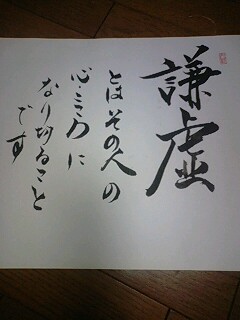 謙虚
とはその人の
心・こころに
なり切ること
です